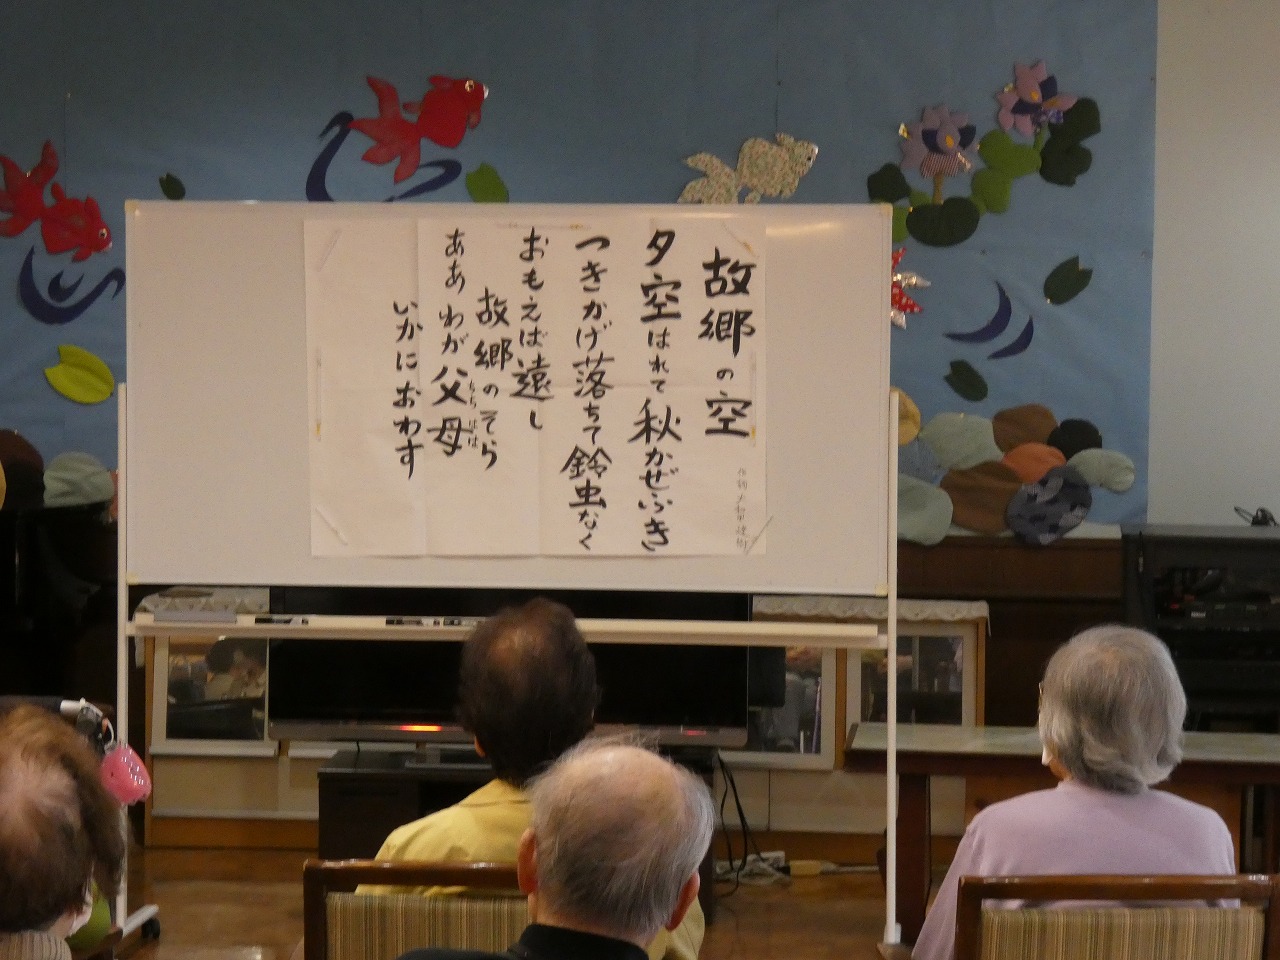 故郷の空
作詞 大和田建樹
夕空はれて秋かぜふき
つきかげ落ちて鈴虫なく
おもえば遠し
故郷のそら
ああわが父母
ちちはは
いかにおわす